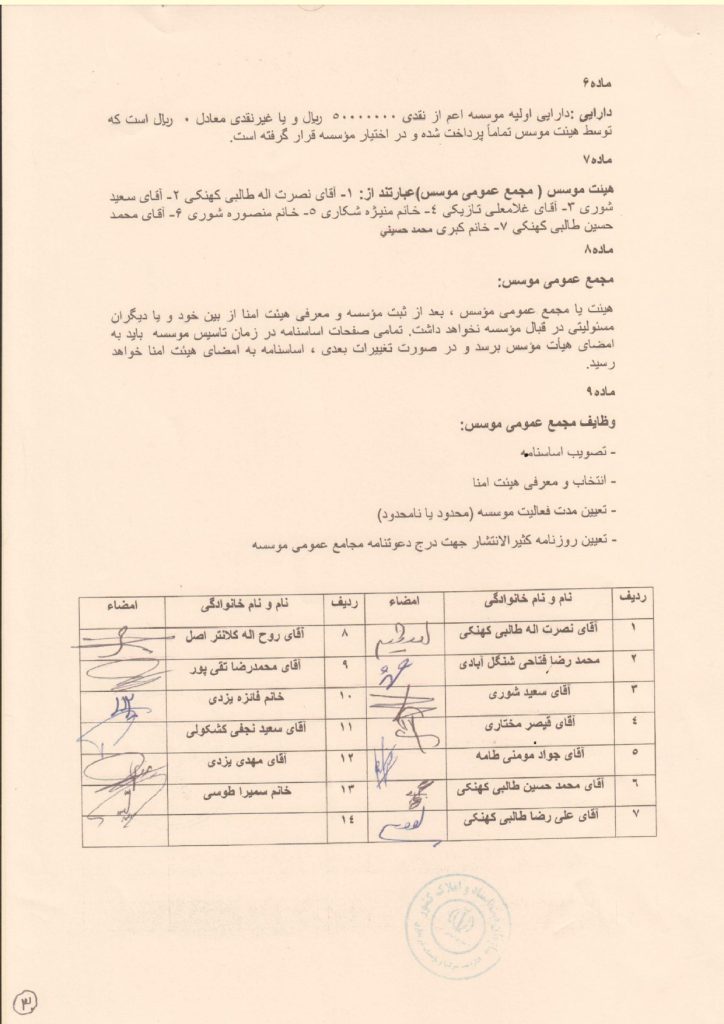 ماده۶
دارایی :دارایی اولیه موسسه اعم از نقدی ۵۰۰۰۰۰۰۰ ریال و یا غیرنقدی معادل ۰ ریال است که
توسط هیئت موسس تماماً پرداخت شده و در اختیار مؤسسه قرار گرفته است.
ماده۷
هیئت موسس ( مجمع عمومی موسس)عبارتند از: ۱- آقای نصرت اله طالبی کهنکی ۲- آقای سعید
شوری ۳- آقای غلامعلی تازیکی ۴- خانم منیژه شکاری ۵- خانم منصوره شوری ۶- آقای محمد
حسین طالبی کهنکی ۷- خانم کبری محمد حسینی
ماده۸
مجمع عمومی موسس:
هیئت یا مجمع عمومی مؤسس ، بعد از ثبت مؤسسه و معرفی هیئت امنا از بین خود و یا دیگران
مسئولیتی در قبال مؤسسه نخواهد داشت. تمامی صفحات اساسنامه در زمان تاسیس موسسه باید به
امضای هیأت مؤسس برسد و در صورت تغییرات بعدی ، اساسنامه به امضای هیئت امنا خواهد
رسید.
ماده۹
وظایف مجمع عمومی موسس:
- تصویب اساسنامه
- انتخاب و معرفی هیئت امنا
- تعیین مدت فعالیت موسسه (محدود یا نامحدود)
- تعیین روزنامه کثیرالانتشار جهت درج دعوتنامه مجامع عمومی موسسه
ردیف نام و نام خانوادگی امضاء ردیف نام و نام خانوادگی امضاء
۱ آقای نصرت اله طالبی کهنکی ۸ آقای روح اله کلانتر اصل
۲ محمد رضا فتاحی شنگل آبادی ۹ آقای محمدرضا تقی پور
۳ آقای سعید شوری ۱۰ خانم فائزه یزدی
۴ آقای قیصر مختاری ۱۱ آقای سعید نجفی کشکولی
۵ آقای جواد مومنی طامه ۱۲ آقای مهدی یزدی
۶ آقای محمد حسین طالبی کهنکی ۱۳ خانم سمیرا طوسی
۷ آقای علی رضا طالبی کهنکی ۱۴
۳